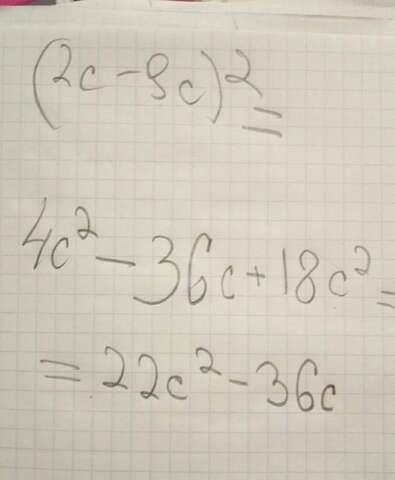 (2c-9c)²=
4c²-36c+18c²=
=22c²-36c